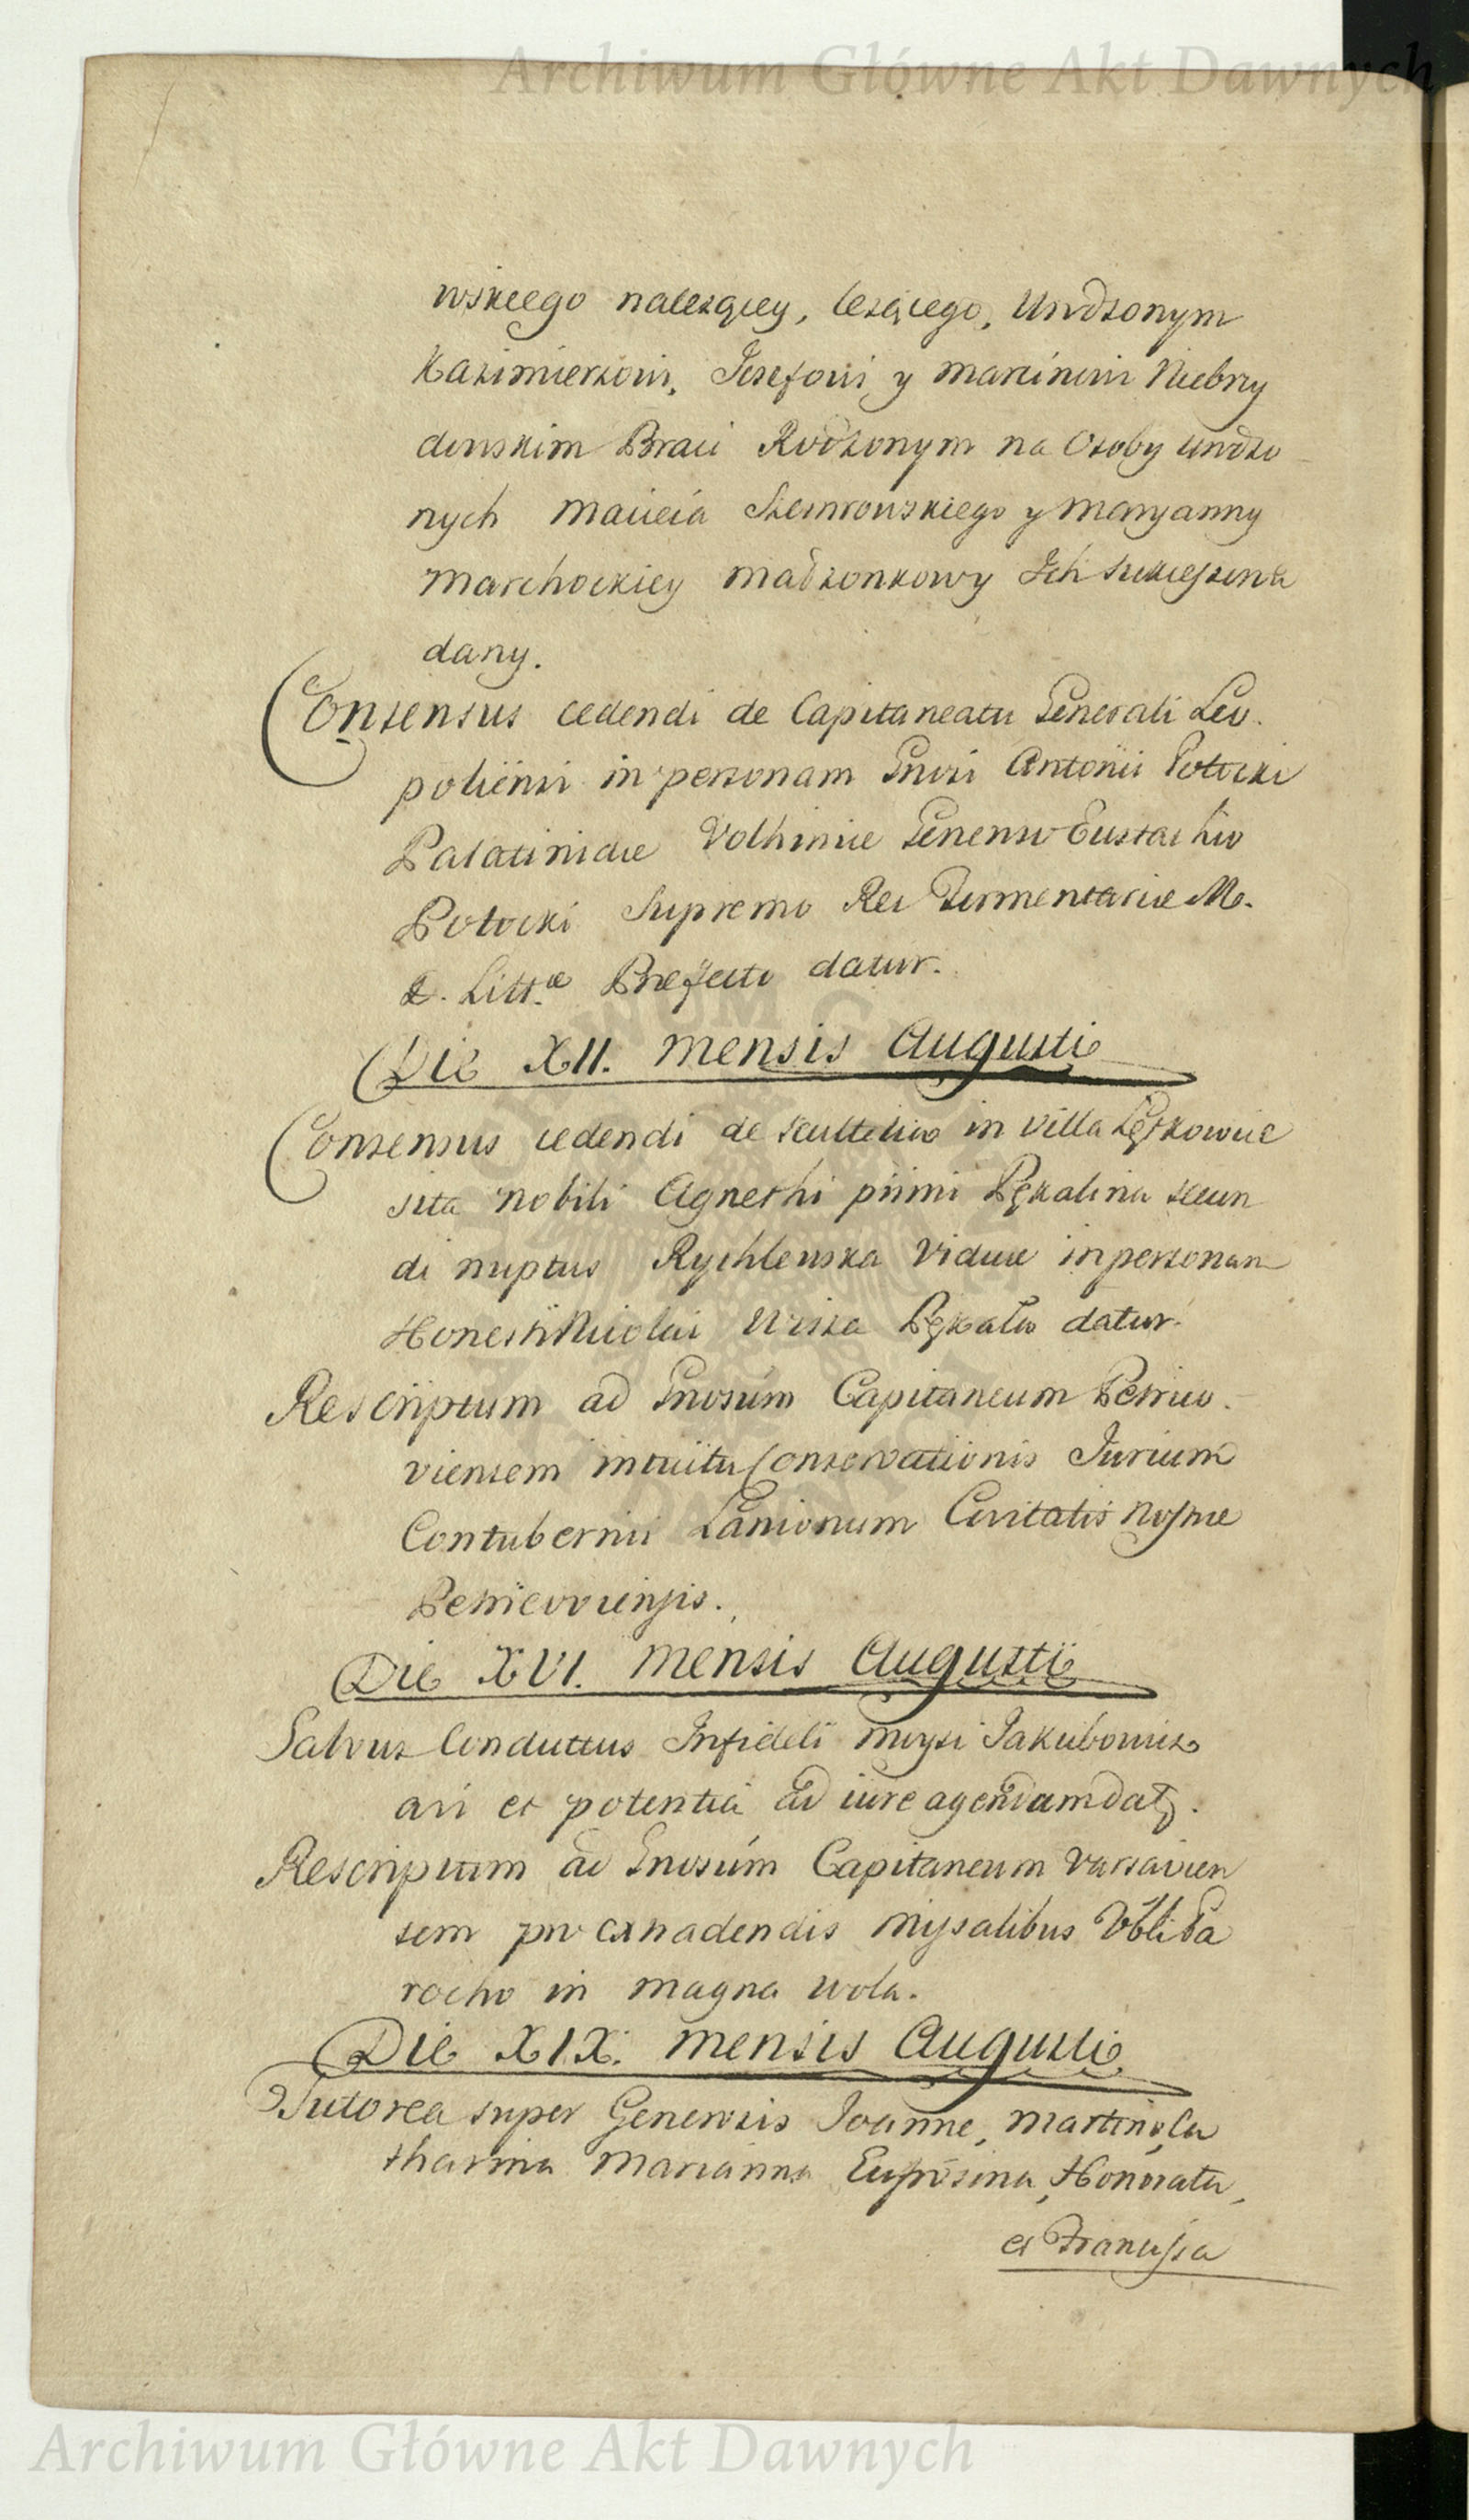 Archiwum Główne Akt Dawnych
wskiego należącey, leżącego, Urodzonym
Kazimierzowi, Jozefowi y Marcinowi Niebrzy
dowskim Braci Rodzonym na Osoby Urodzo
nych Macieia y Maryanny
Marchockiey Małżonkowy Ich
dany.
Consensus cedendi de Capitaneatu Generali Leo-
poliensi in personam Gnosi Antonii Potocki
Palatinidae Volhiniae Generoso Eustachio
Potocki Supremo Rei Tormentariae M.
D. Litt.ae Praefecto datur.
Die XII. Mensis Augusti
Consensus cedendi de Scultetia in villa
sita Nobili Agnethi primi Pękalina secun
di nuptus Rychlewska Viduae in personam
Honesti Nicolai Pękala datur.
Rescriptum ad Gnosum Capitaneum Petrico-
viensem intuitu Conservationis Jurium
Contubernii Lanionum Civitatis Nostrae
Petricoviensis.
Die XVI. Mensis Augusti
Salvus Conductus Infideli Moysi Jakubowicz
a vi et potentia ad iure agendum datr.
Rescriptum ad Gnosum Capitaneum Varsavien
sem pro extradendis Missalibus Vbli Pa
rocho in Magna Wola.
Die XIX. Mensis Augusti
Tutorea super Generosis Joanne, Martino, Ca
tharina Marianna Eufrosina, Honorata,
et Francisca
Archiwum Główne Akt Dawnych